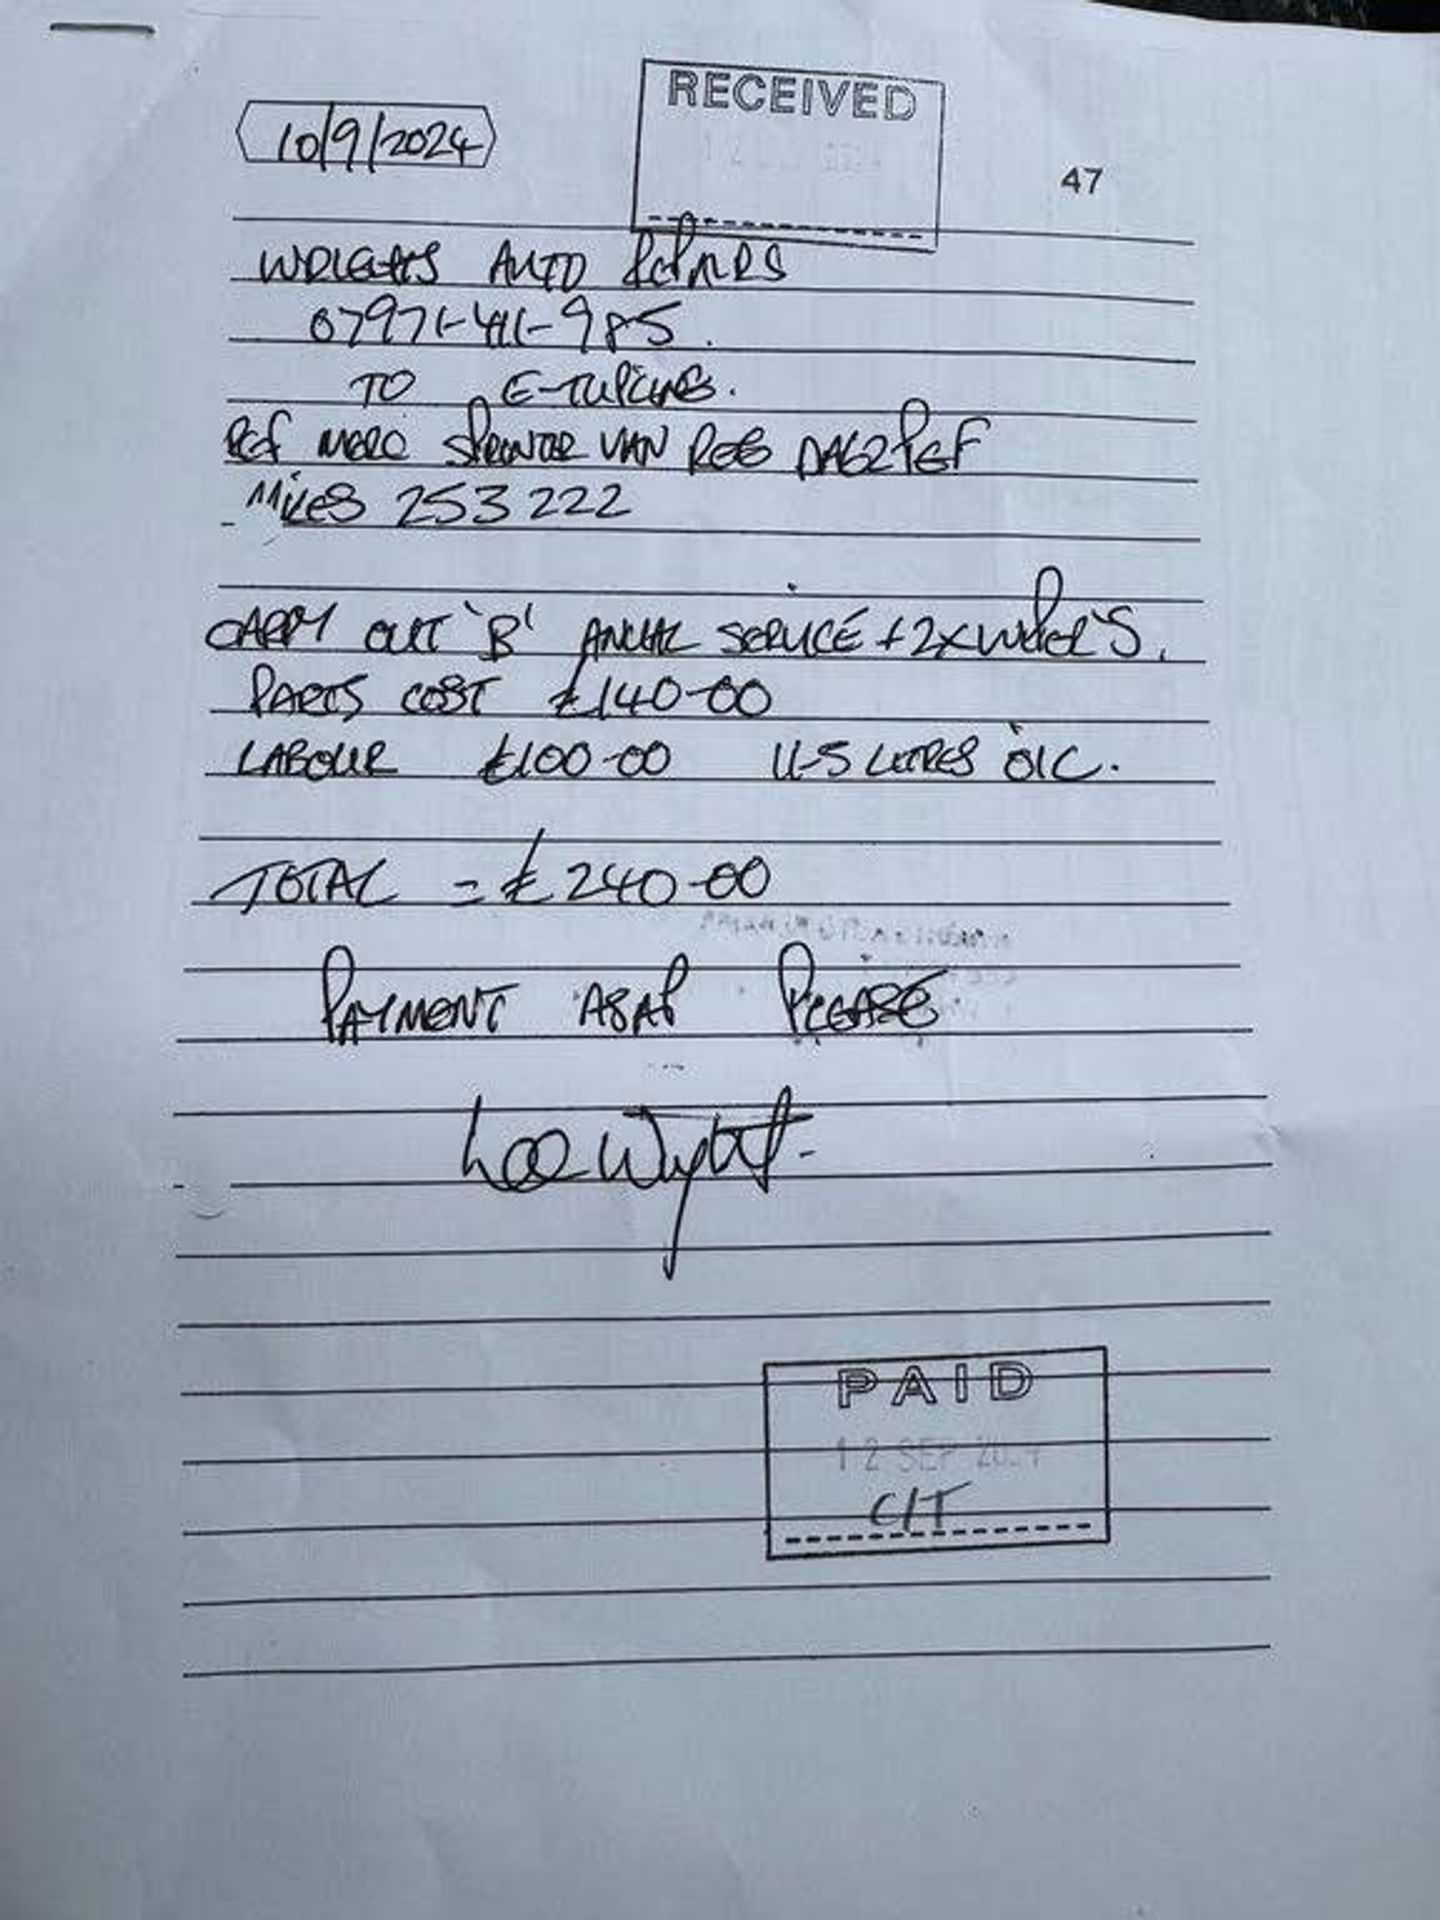 RECEIVED
10/9/2024
47
WRIGHTS AUTO REPAIRS
07971-411-985.
TO E-TUPLING.
Ref MERC SPRINTER VAN REG DA62PGF
MILES 253222
CARRY OUT 'B' ANUAL SERVICE + 2X WIPER'S.
PARTS COST £140-00
LABOUR £100-00 11-5 LITRES OIL.
TOTAL = £240-00
PAYMENT ASAP PLEASE
Lee Wright.
PAID
12 SEP 2024
C/T